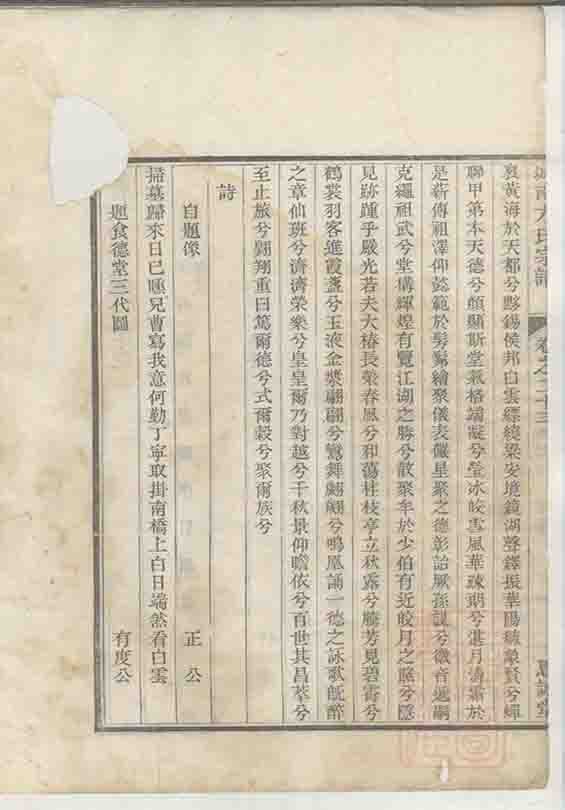 城南方氏宗譜 卷之二十三
襄黃海於天都兮夥錫侯邦白雲繹繞梁安境鏡湖聲鐸振華陽續象賢兮蟬
聯甲第本天德兮頎顯斯堂氣格端凝兮瑩冰皎雪風華疎朗兮湛月濤霜於
是薪傳祖澤仰懿範於髣髴繪聚儀表儼星聚之德彰詒厥孫謀兮徽音遞嗣
克繩祖武兮堂構輝煌有覽江湖之勝兮散聚牟於少伯有近皎月之曛兮隱
見跡踵乎嚴光若夫大椿長榮春風兮和蕩桂枝亭立秋露兮騰芳見碧霄兮
鶴裳羽客進霞盞兮玉液金漿翩翩兮鸞舞翽翽兮鳴凰誦一德之詠歌旣醉
之章仙班兮濟濟榮樂兮皇皇爾乃對越兮千秋景仰瞻依兮百世其昌萃兮
至止旅兮翱翔重曰篤爾德兮式爾穀兮聚爾族兮
詩
自題像 正公
掃墓歸來日已曛兒曹寫我意何勤丁寧取掛南橋上白日端然看白雲
題食德堂三代圖 有度公